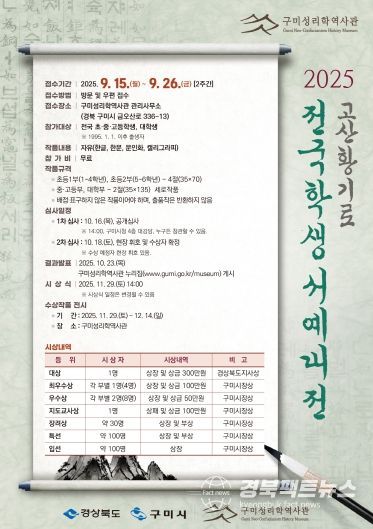 구미성리학역사관
Gumi Neo-Confucianism History Museum
2025
고산황기로
전국학생서예대전
접수기간 | 2025. 9. 15.(월) ~ 9. 26.(금) [2주간]
접수방법 | 방문 및 우편 접수
접수장소 | 구미성리학역사관 관리사무소
(경북 구미시 금오산로 336-13)
참가대상 | 전국 초·중·고등학생, 대학생
※ 1995. 1. 1. 이후 출생자
작품내용 | 자유(한글, 한문, 문인화, 캘리그라피)
참 가 비 | 무료
작품규격
초등1부(1~4학년), 초등2부(5~6학년) - 4절(35×70)
중·고등부, 대학부 - 2절(35×135) 세로작품
배접·표구하지 않은 작품이어야 하며, 출품작은 반환하지 않음
심사일정
1차 심사 : 10. 16.(목), 공개심사
※ 14:00, 구미시청 4층 대강당, 누구든 참관할 수 있음.
2차 심사 : 10. 18.(토), 현장 휘호 및 수상자 확정
※ 수상 예정자 현장 휘호 있음.
결과발표 | 2025. 10. 23.(목)
구미성리학역사관 누리집(www.gumi.go.kr/museum) 게시
시 상 식 | 2025. 11. 29.(토) 14:00
※ 시상식 일정은 변경될 수 있음
수상작품 전시
기 간 : 2025. 11. 29.(토) ~ 12. 14.(일)
장 소 : 구미성리학역사관
시상내역
등 위 시 상 자 시상내역 비 고
대상 1명 상장 및 상금 300만원 경상북도지사상
최우수상 각 부별 1명(4명) 상장 및 상금 100만원 구미시장상
우수상 각 부별 2명(8명) 상장 및 상금 50만원 구미시장상
지도교사상 1명 상패 및 상금 100만원 구미시장상
장려상 약 30명 상장 및 부상 구미시장상
특선 약 100명 상장 및 부상 구미시장상
입선 약 100명 상장 구미시장상
경상북도
구미시
구미성리학역사관
Gumi Neo-Confucianism History Museum
경북팩트뉴스
Fact news